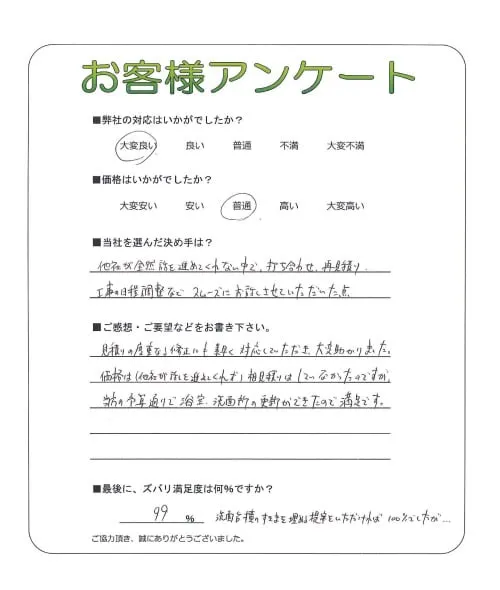 お客様アンケート
■弊社の対応はいかがでしたか？
大変良い 良い 普通 不満 大変不満
■価格はいかがでしたか？
大変安い 安い 普通 高い 大変高い
■当社を選んだ決め手は？
他社が全然話を進めてくれない中で、打ち合わせ、再見積り、
工事の日程調整など スムーズにお話しさせていただいた点
■ご感想・ご要望などをお書き下さい。
見積りの度重なる修正にも 素早く 対応していただき、大変助かりました。
価格は(他社が話を進めてくれず)相見積りは していなかったのですが、
当方の予算通りで 浴室、洗面所の更新ができたので 満足です。
■最後に、ズバリ満足度は何%ですか？
99 % 洗面台横のすきまを埋める提案をいただければ 100%でしたが…
ご協力頂き、誠にありがとうございました。